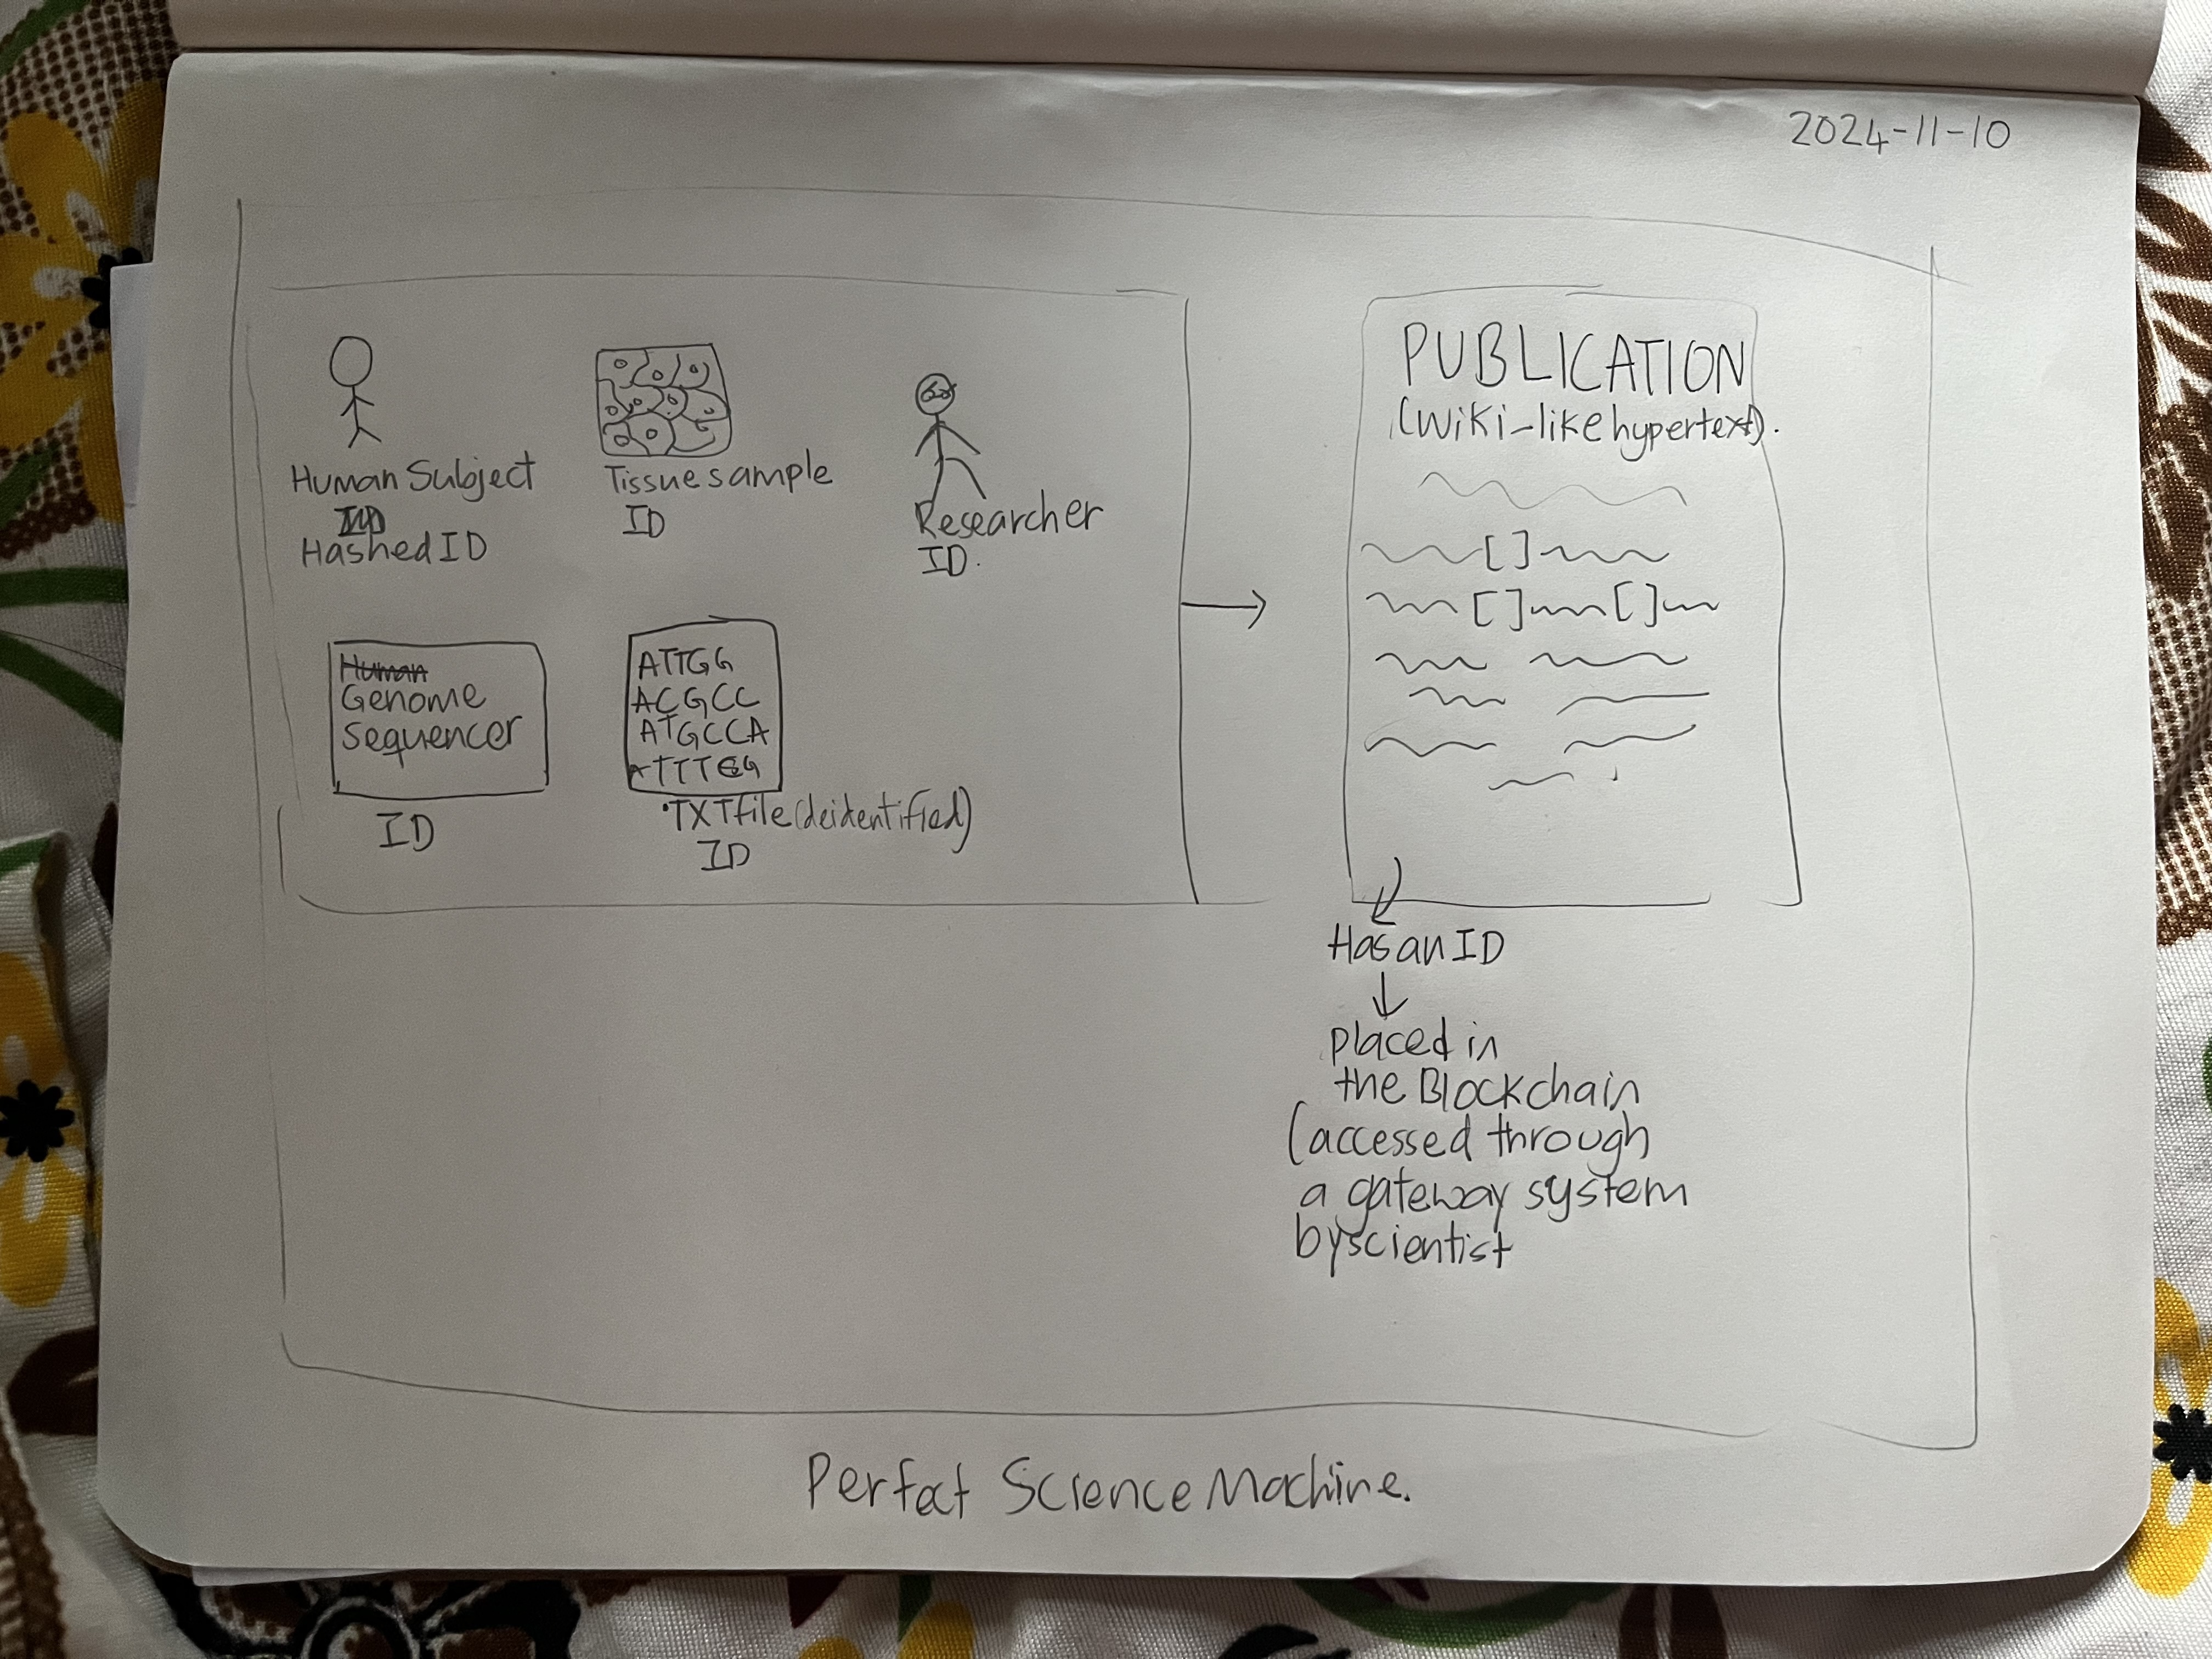 2024-11-10
Human Subject
Hashed ID
Tissue sample
ID
Researcher
ID.
Human
Genome
Sequencer
ID
ATTGG
ACGCC
ATGCCA
ATTTGG
.TXT file (deidentified)
ID
PUBLICATION
(Wiki-like hypertext).
[ ]
[ ] [ ]
Has an ID
placed in
the Blockchain
(accessed through
a gateway system
by scientist
Perfect Science Machine.